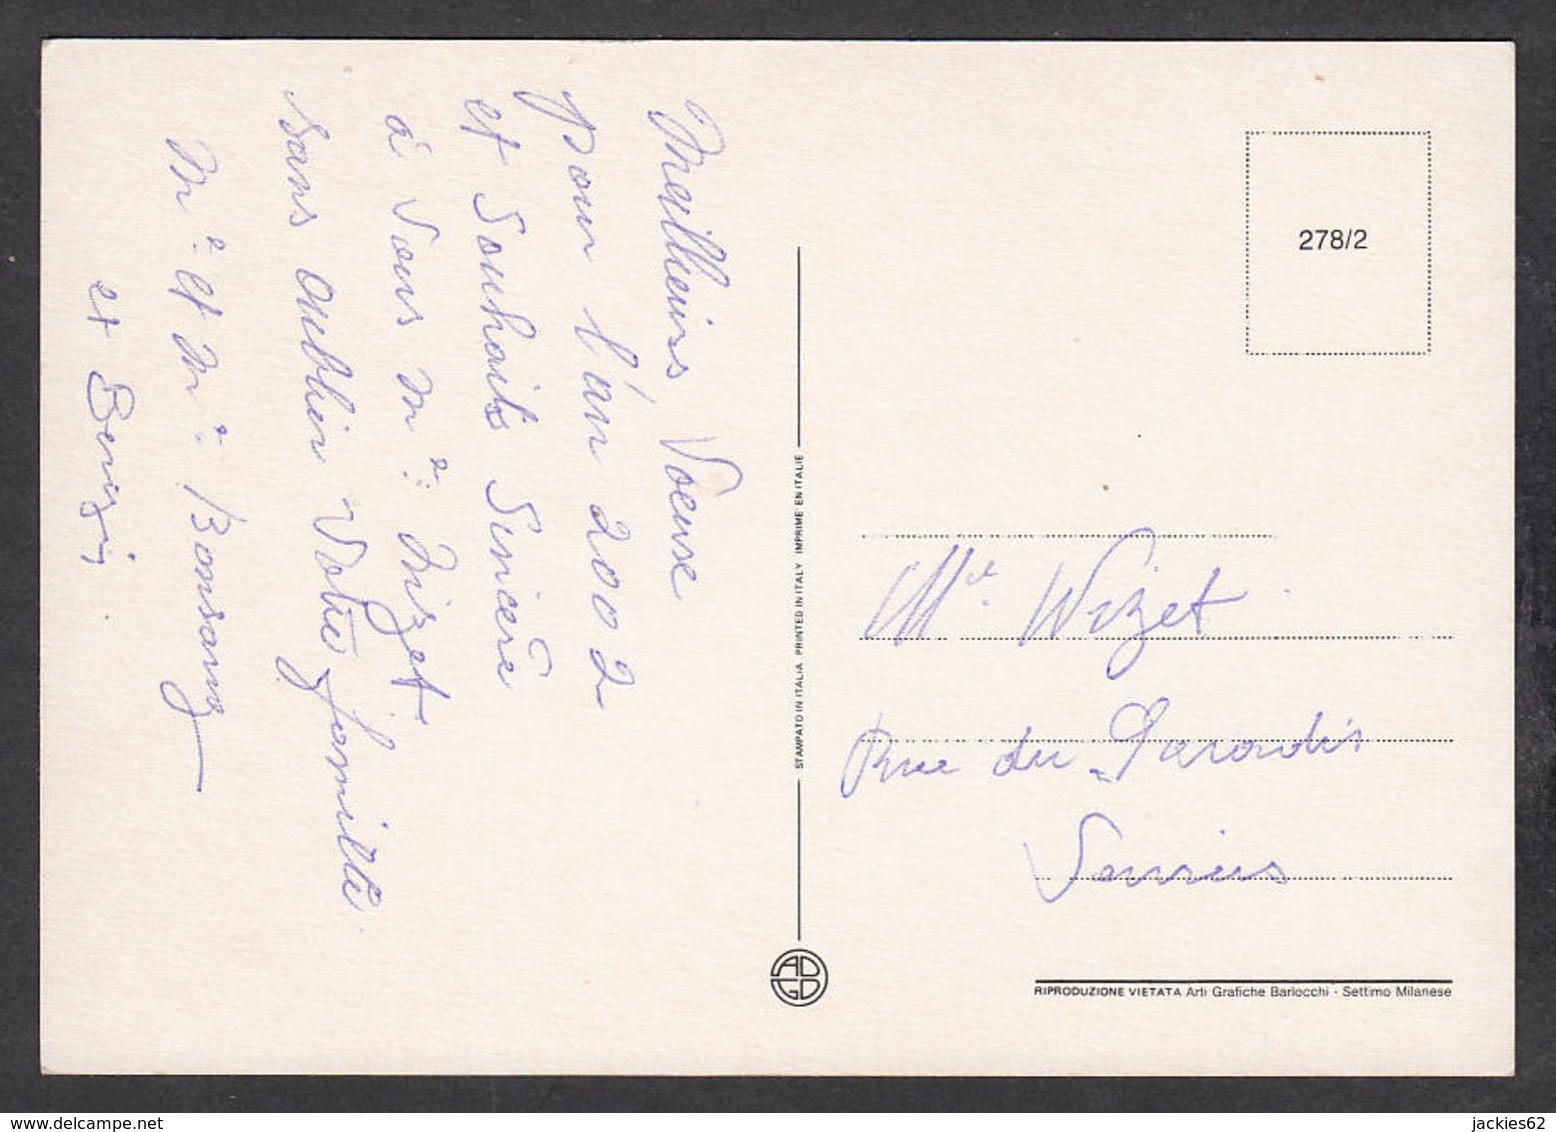 Meilleurs Voeuse
pour l'an 2002
et Souhaits Sincère
à Vous Mr: Wizet
Sans oublier Votre famille
Mr: et Me: Bonsang
et
278/2
STAMPATO IN ITALIA PRINTED IN ITALY IMPRIME EN ITALIE
Wizet
Rue du Paradis
ADGD
RIPRODUZIONE VIETATA Arti Grafiche Barlocchi - Settimo Milanese
delcampe.net
jackies62